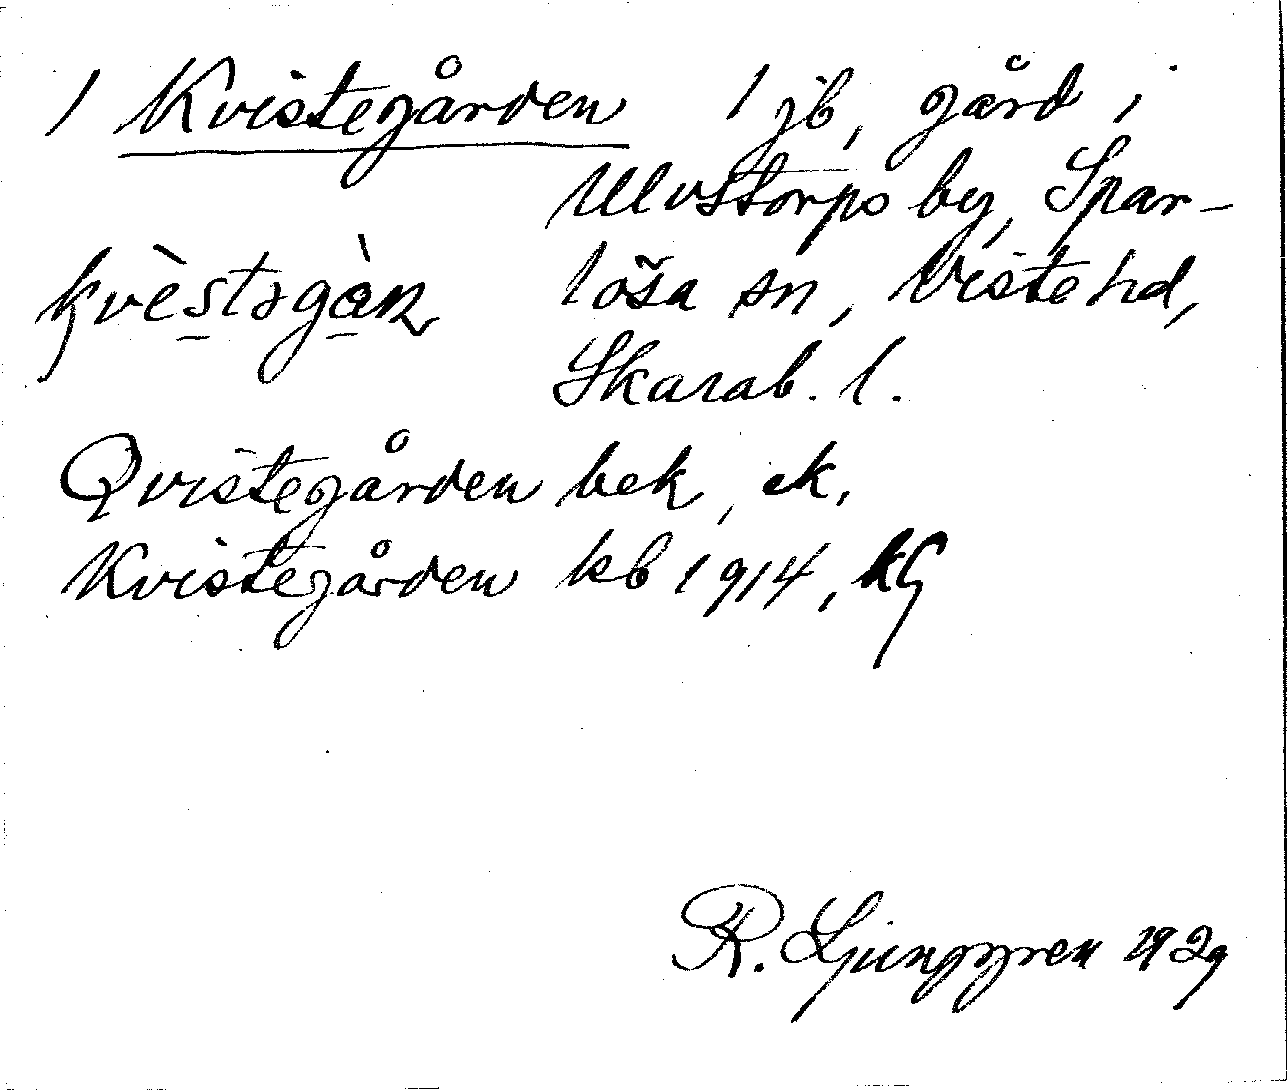 1 Kvistegården 1 jb, gård i
Ulvstorps by, Spar-
kvèstəgàn lösa sn, Viste hd,
Skarab. l.
Qvistegården bek, ek,
Kvistegården kb 1914, kG
R. Ljunggren 1929